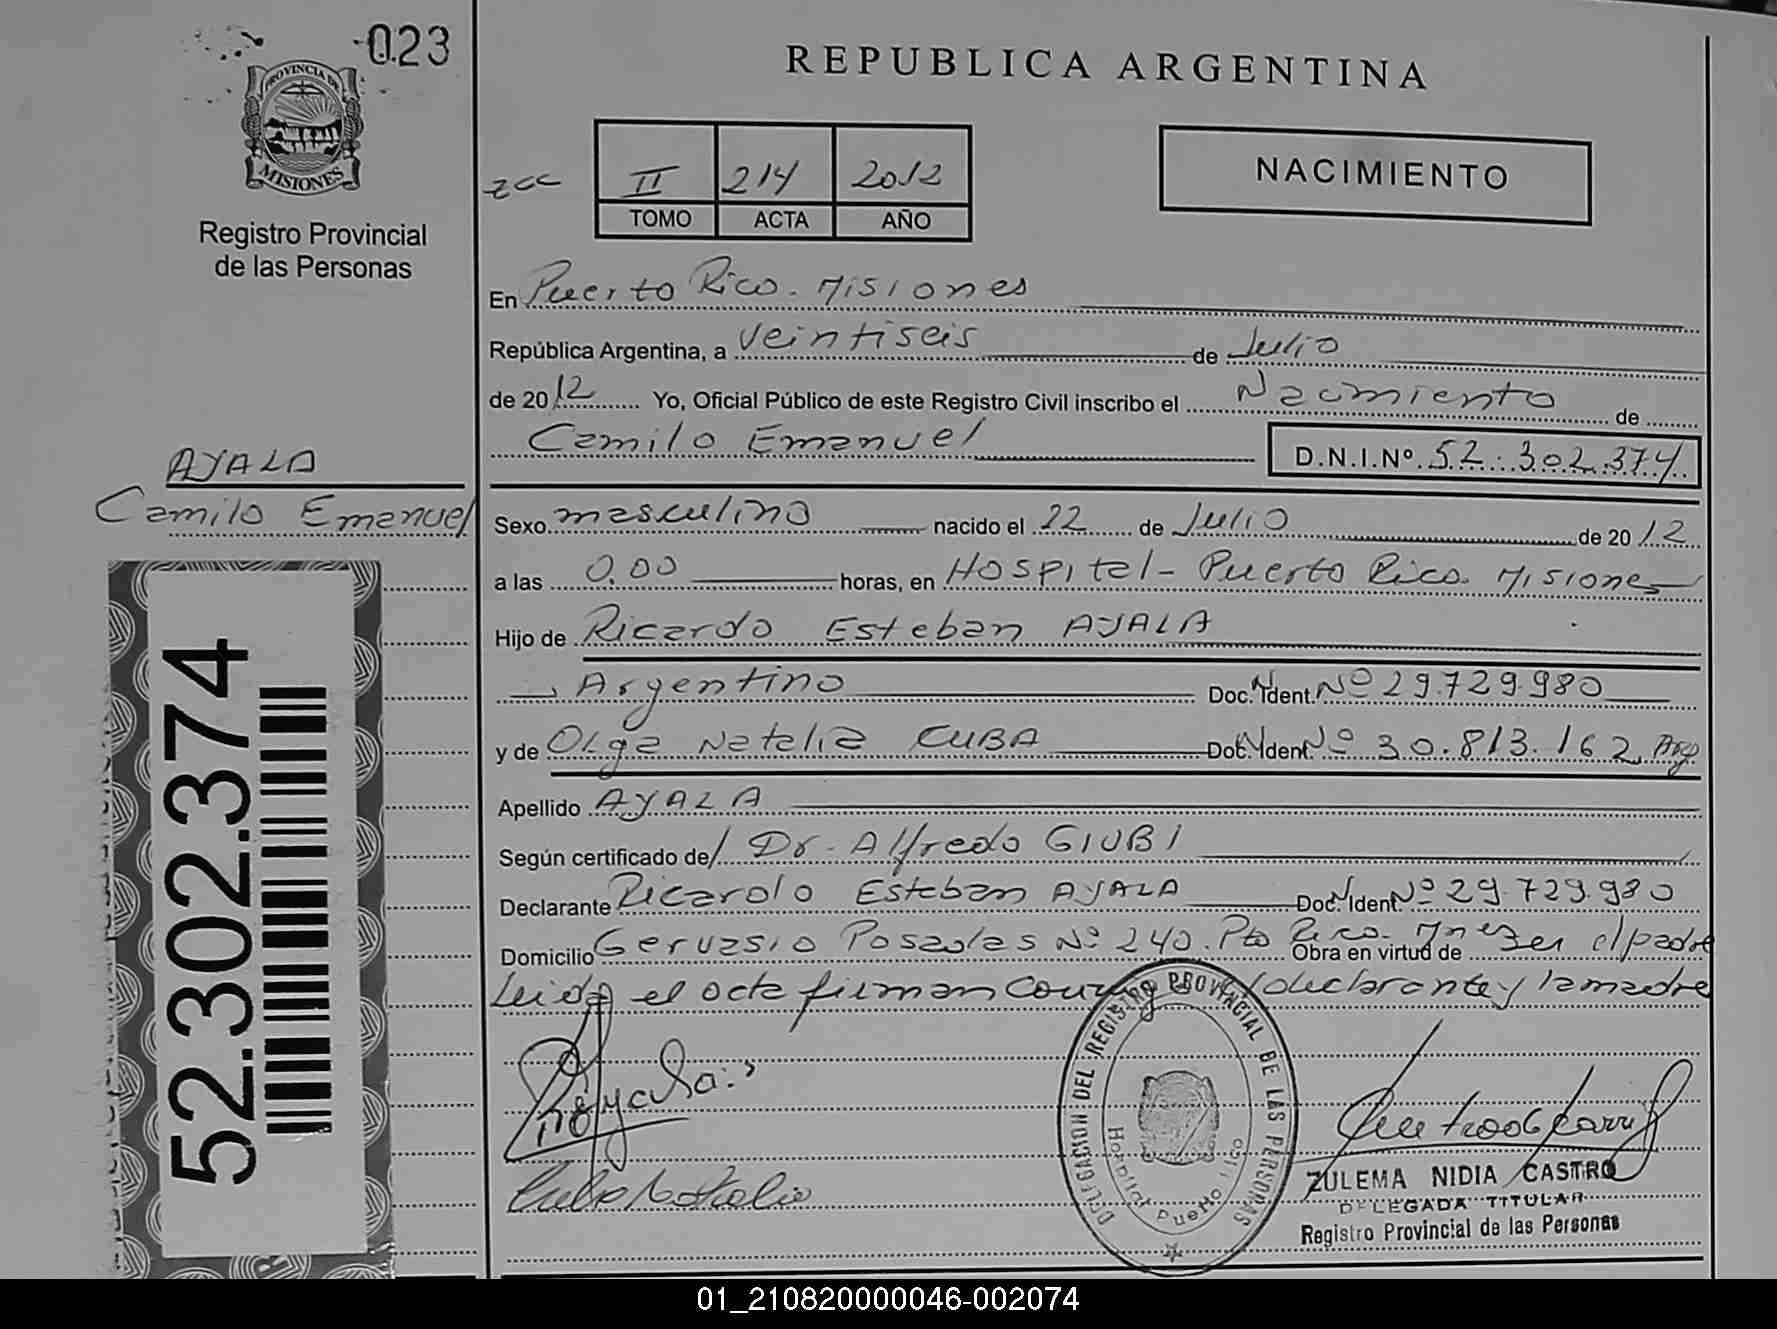 023
PROVINCIA DE
MISIONES
Registro Provincial
de las Personas
REPUBLICA ARGENTINA
II 214 2012
TOMO ACTA AÑO
NACIMIENTO
En Puerto Rico. Misiones
República Argentina, a veintiseis de Julio
de 2012 Yo, Oficial Público de este Registro Civil inscribo el Nacimiento de
Camilo Emanuel D.N.I.Nº. 52.302.374
AYALA
Camilo Emanuel
Sexo masculino nacido el 22 de Julio de 2012
a las 0.00 horas, en Hospital - Puerto Rico. Misiones
Hijo de Ricardo Esteban AYALA
Argentino Doc. Ident. Nº 29.729.980
y de Olga Natalia CUBA Doc. Ident. Nº 30.813.162 Arg.
Apellido AYALA
Según certificado de/ Dr. Alfredo GIUBI
Declarante Ricardo Esteban AYALA Doc. Ident. Nº 29.729.980
Domicilio Gervasio Posadas Nº 240. Pto Rico. Mnes Obra en virtud de ser el padre
Leida el acta firman conmigo el declarante y la madre
52.302.374
DELEGACION DEL REGISTRO PROVINCIAL DE LAS PERSONAS
Hospital Puerto Rico
ZULEMA NIDIA CASTRO
DELEGADA TITULAR
Registro Provincial de las Personas
01_210820000046-002074